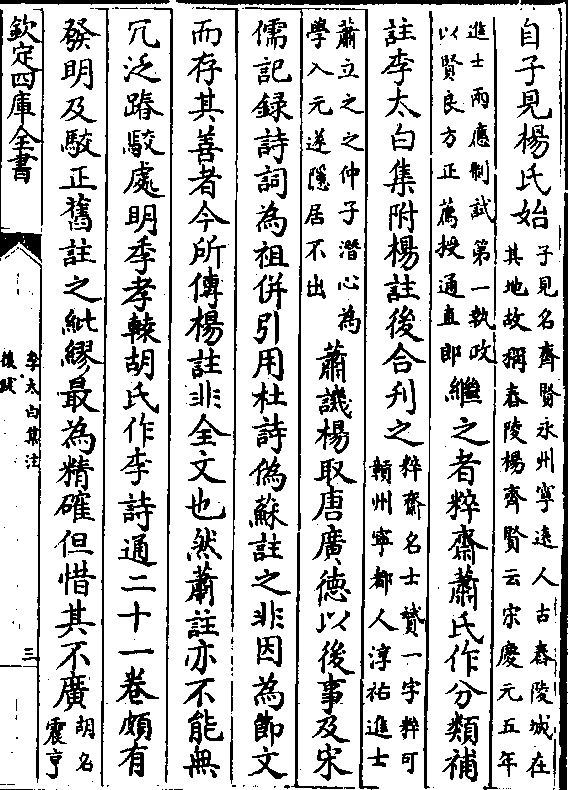 自子見楊氏始子見名齊賢永州寧逺人古舂陵城在其地故稱舂陵楊齊賢云宋慶元五年
進士兩應制試第一執政以賢良方正薦授通直郎繼之者粹齋蕭氏作分類補
註李太白集附楊註後合刋之粹齋名士贇一字粹可贑州寧都人淳祐進士
蕭立之之仲子潛心為學入元遂隱居不出蕭譏楊取唐廣德以後事及宋
儒記録詩詞為祖併引用杜詩偽蘇註之非因為節文
而存其善者今所傳楊註非全文也然蕭註亦不能無
冗泛踳駮處明季孝轅胡氏作李詩通二十一卷頗有
發明及駮正舊註之紕繆最為精確但惜其不廣胡名震亨
欽定四庫全書
李太白集注
後跋
三